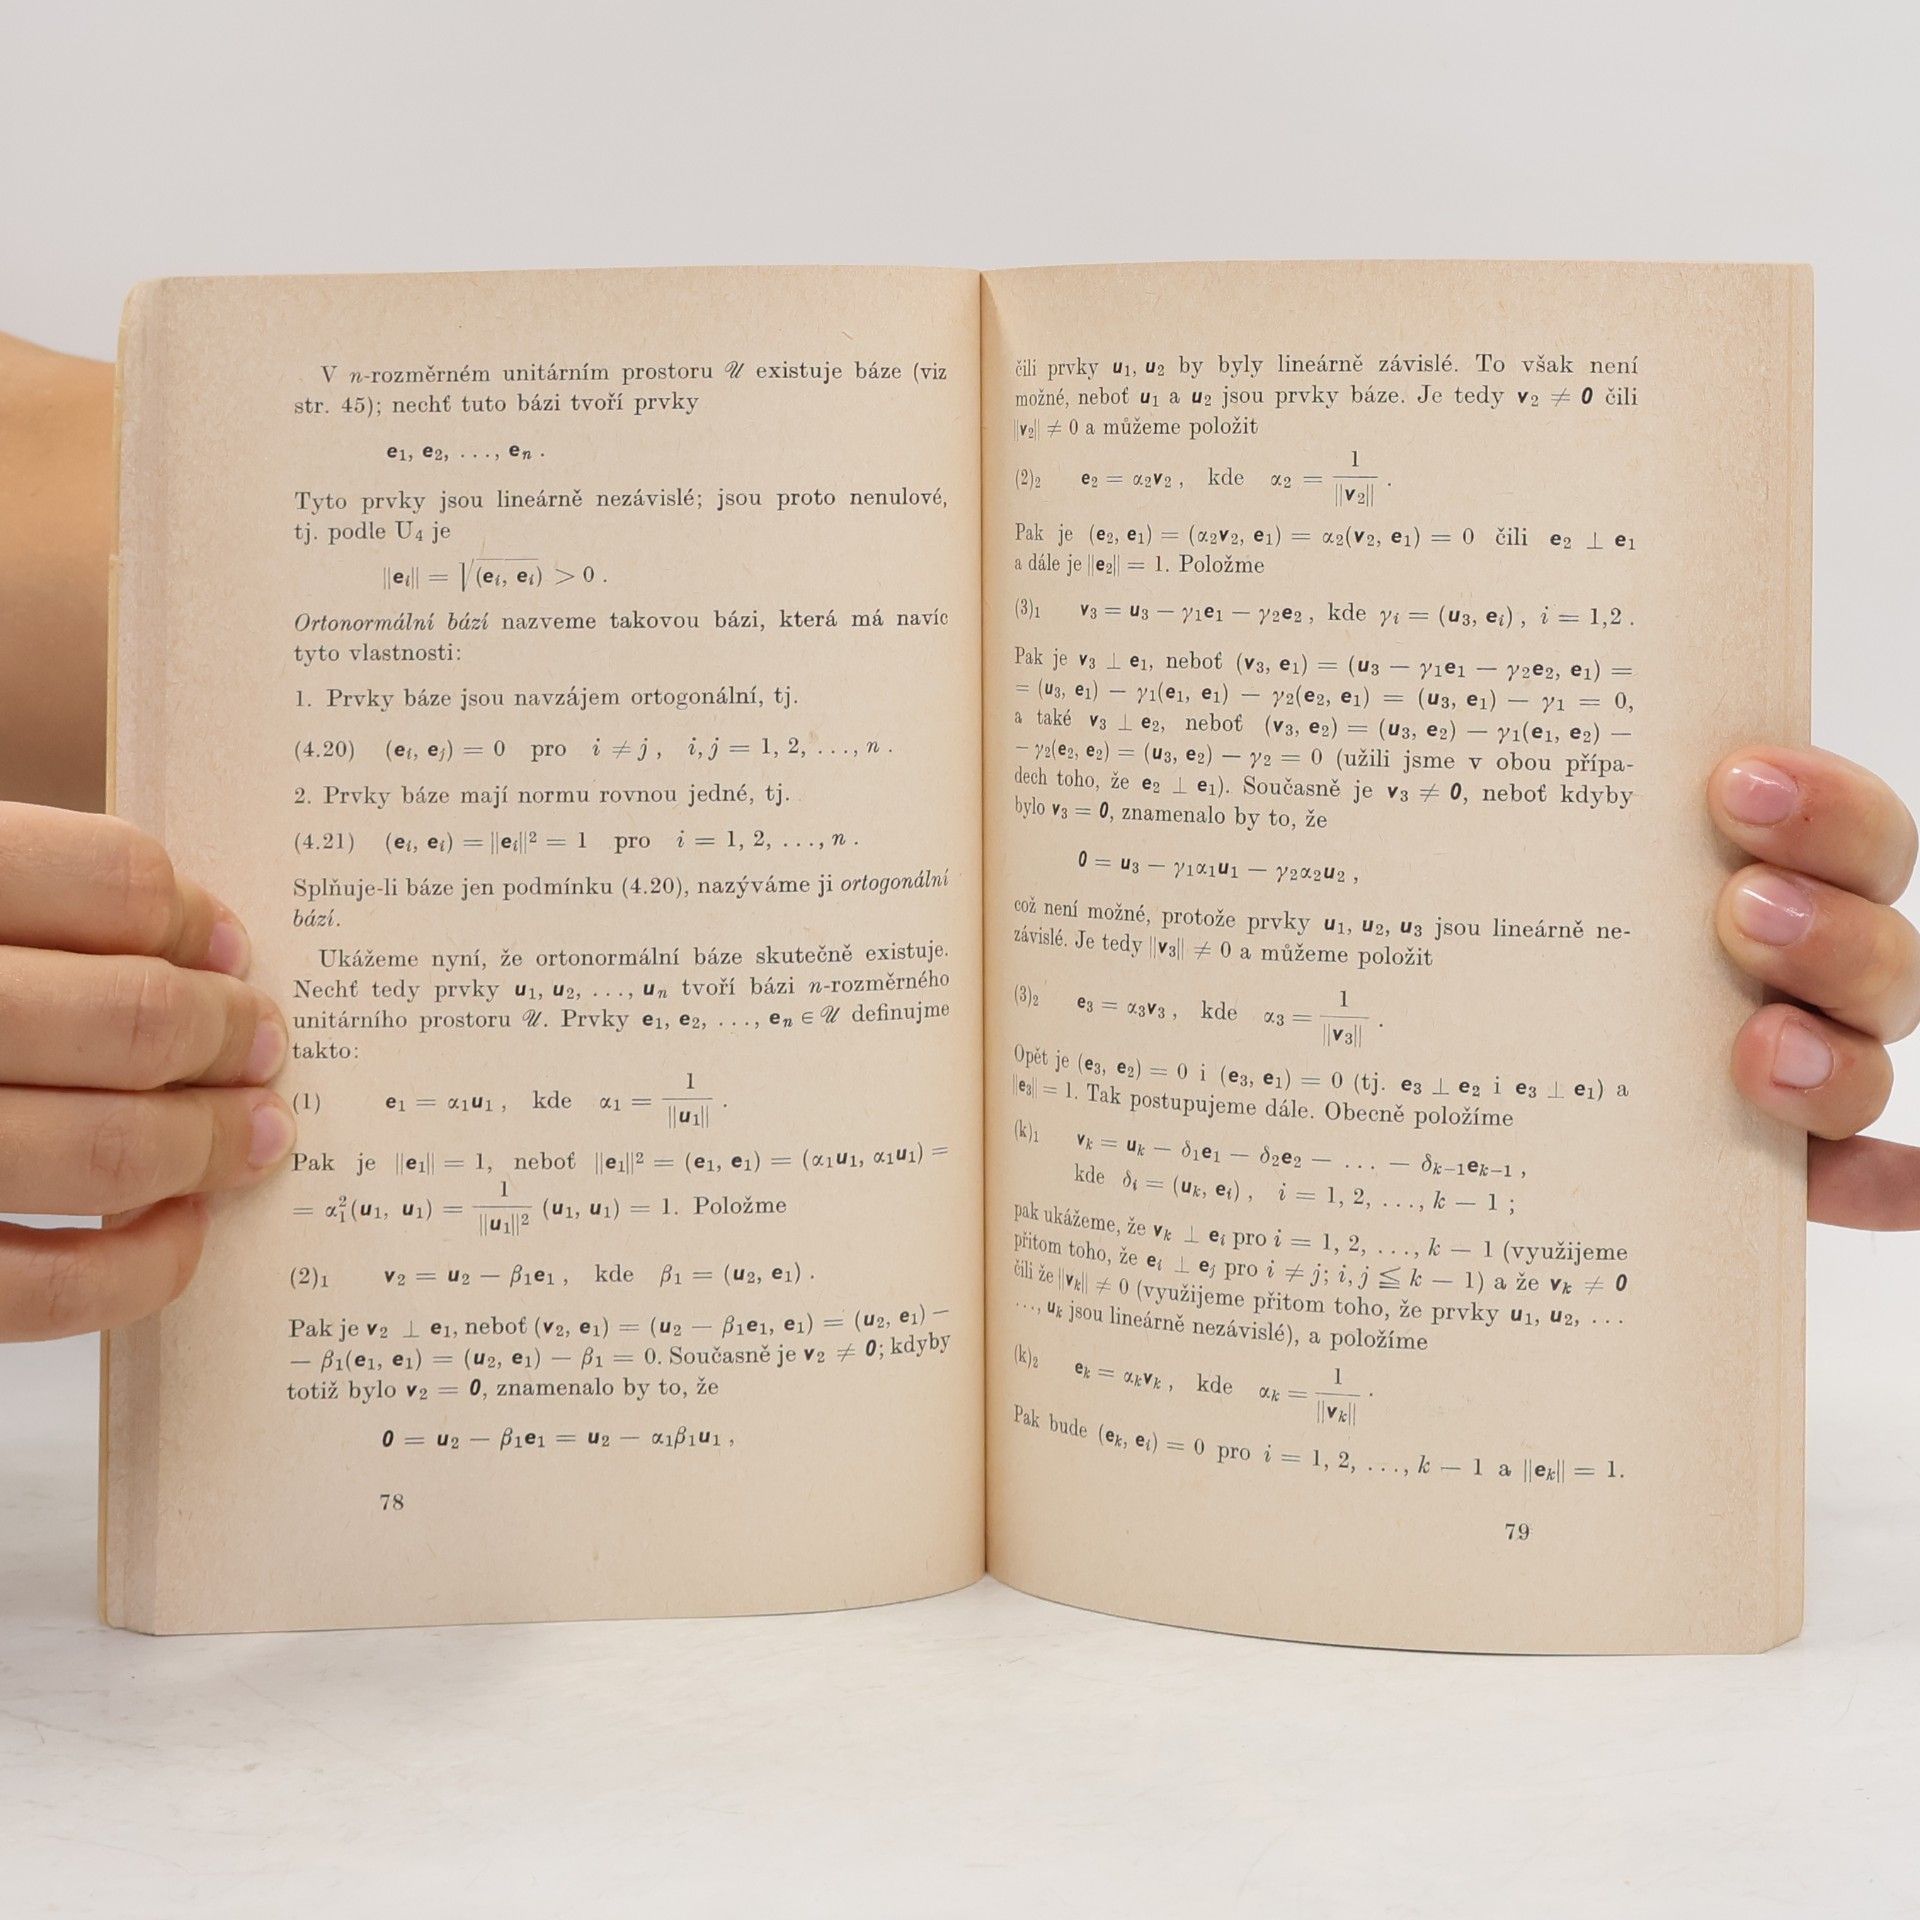 V n-rozměrném unitárním prostoru 𝒰 existuje báze (viz
str. 45); nechť tuto bázi tvoří prvky
e₁, e₂, ..., eₙ .
Tyto prvky jsou lineárně nezávislé; jsou proto nenulové,
tj. podle U₄ je
||eᵢ|| = √(eᵢ, eᵢ) > 0 .
Ortonormální bází nazveme takovou bázi, která má navíc
tyto vlastnosti:
1. Prvky báze jsou navzájem ortogonální, tj.
(4.20) (eᵢ, eⱼ) = 0 pro i ≠ j , i, j = 1, 2, ..., n .
2. Prvky báze mají normu rovnou jedné, tj.
(4.21) (eᵢ, eᵢ) = ||eᵢ||² = 1 pro i = 1, 2, ..., n .
Splňuje-li báze jen podmínku (4.20), nazýváme ji ortogonální
bází.
Ukážeme nyní, že ortonormální báze skutečně existuje.
Nechť tedy prvky u₁, u₂, ..., uₙ tvoří bázi n-rozměrného
unitárního prostoru 𝒰. Prvky e₁, e₂, ..., eₙ ∈ 𝒰 definujme
takto:
(1) e₁ = α₁u₁ , kde α₁ = 1/||u₁|| .
Pak je ||e₁|| = 1, neboť ||e₁||² = (e₁, e₁) = (α₁u₁, α₁u₁) =
= α₁²(u₁, u₁) = 1/||u₁||² (u₁, u₁) = 1. Položme
(2)₁ v₂ = u₂ − β₁e₁ , kde β₁ = (u₂, e₁) .
Pak je v₂ ⊥ e₁, neboť (v₂, e₁) = (u₂ − β₁e₁, e₁) = (u₂, e₁) −
− β₁(e₁, e₁) = (u₂, e₁) − β₁ = 0. Současně je v₂ ≠ 0; kdyby
totiž bylo v₂ = 0, znamenalo by to, že
0 = u₂ − β₁e₁ = u₂ − α₁β₁u₁ ,
78
čili prvky u₁, u₂ by byly lineárně závislé. To však není
možné, neboť u₁ a u₂ jsou prvky báze. Je tedy v₂ ≠ 0 čili
||v₂|| ≠ 0 a můžeme položit
(2)₂ e₂ = α₂v₂ , kde α₂ = 1/||v₂|| .
Pak je (e₂, e₁) = (α₂v₂, e₁) = α₂(v₂, e₁) = 0 čili e₂ ⊥ e₁
a dále je ||e₂|| = 1. Položme
(3)₁ v₃ = u₃ − γ₁e₁ − γ₂e₂ , kde γᵢ = (u₃, eᵢ) , i = 1,2 .
Pak je v₃ ⊥ e₁, neboť (v₃, e₁) = (u₃ − γ₁e₁ − γ₂e₂, e₁) =
= (u₃, e₁) − γ₁(e₁, e₁) − γ₂(e₂, e₁) = (u₃, e₁) − γ₁ = 0,
a také v₃ ⊥ e₂, neboť (v₃, e₂) = (u₃, e₂) − γ₁(e₁, e₂) −
− γ₂(e₂, e₂) = (u₃, e₂) − γ₂ = 0 (užili jsme v obou přípa-
dech toho, že e₂ ⊥ e₁). Současně je v₃ ≠ 0, neboť kdyby
bylo v₃ = 0, znamenalo by to, že
0 = u₃ − γ₁α₁u₁ − γ₂α₂u₂ ,
což není možné, protože prvky u₁, u₂, u₃ jsou lineárně ne-
závislé. Je tedy ||v₃|| ≠ 0 a můžeme položit
(3)₂ e₃ = α₃v₃ , kde α₃ = 1/||v₃|| .
Opět je (e₃, e₂) = 0 i (e₃, e₁) = 0 (tj. e₃ ⊥ e₂ i e₃ ⊥ e₁) a
||e₃|| = 1. Tak postupujeme dále. Obecně položíme
(k)₁ vₖ = uₖ − δ₁e₁ − δ₂e₂ − ... − δₖ₋₁eₖ₋₁ ,
kde δᵢ = (uₖ, eᵢ) , i = 1, 2, ..., k − 1 ;
pak ukážeme, že vₖ ⊥ eᵢ pro i = 1, 2, ..., k − 1 (využijeme
přitom toho, že eᵢ ⊥ eⱼ pro i ≠ j; i, j ≦ k − 1) a že vₖ ≠ 0
čili že ||vₖ|| ≠ 0 (využijeme přitom toho, že prvky u₁, u₂, ...
..., uₖ jsou lineárně nezávislé), a položíme
(k)₂ eₖ = αₖvₖ , kde αₖ = 1/||vₖ|| .
Pak bude (eₖ, eᵢ) = 0 pro i = 1, 2, ..., k − 1 a ||eₖ|| = 1.
79